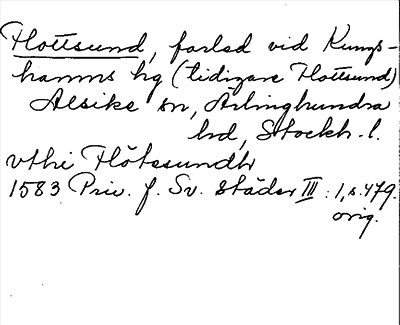 Flottsund, farled vid Kungs-
hamns hg (tidigare Flottsund)
Alsike sn, Ärlinghundra
hd, Stockh. l.
vthi Flötesundh
1583 Priv. f. Sv. Städer III: 1, s. 479.
orig.